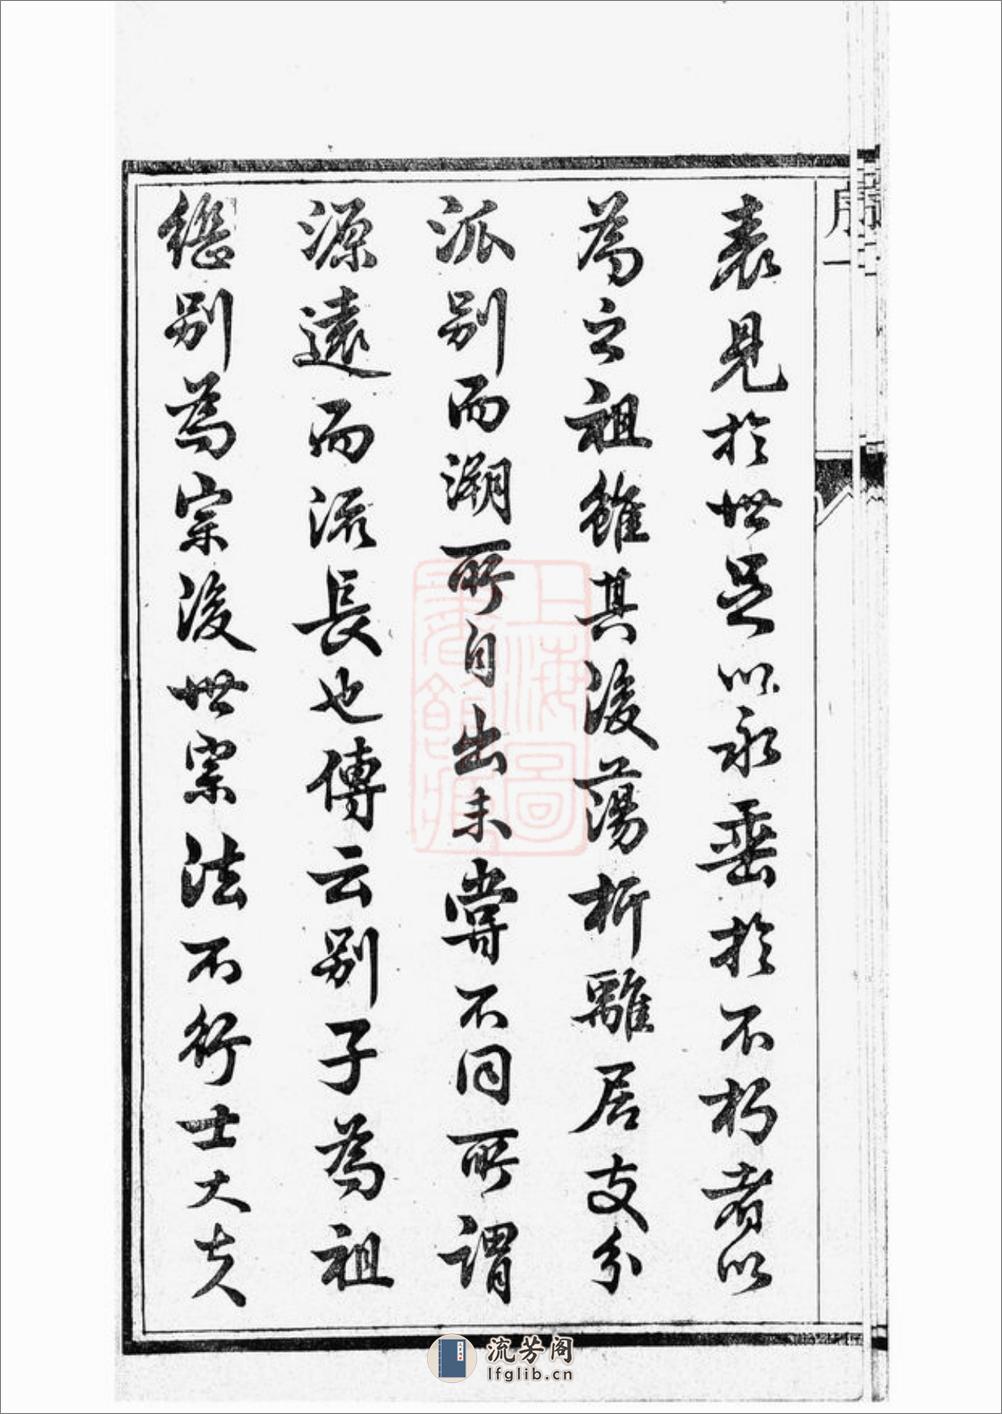 序一
表見於世足以永垂於不朽者以
為之祖雖其後蕩析離居支分
派別而溯所自出未嘗不同所謂
源遠而流長也傳云別子為祖
繼別為宗後世宗法不行士大夫
上海圖書館藏
流芳阁
lfglib.cn